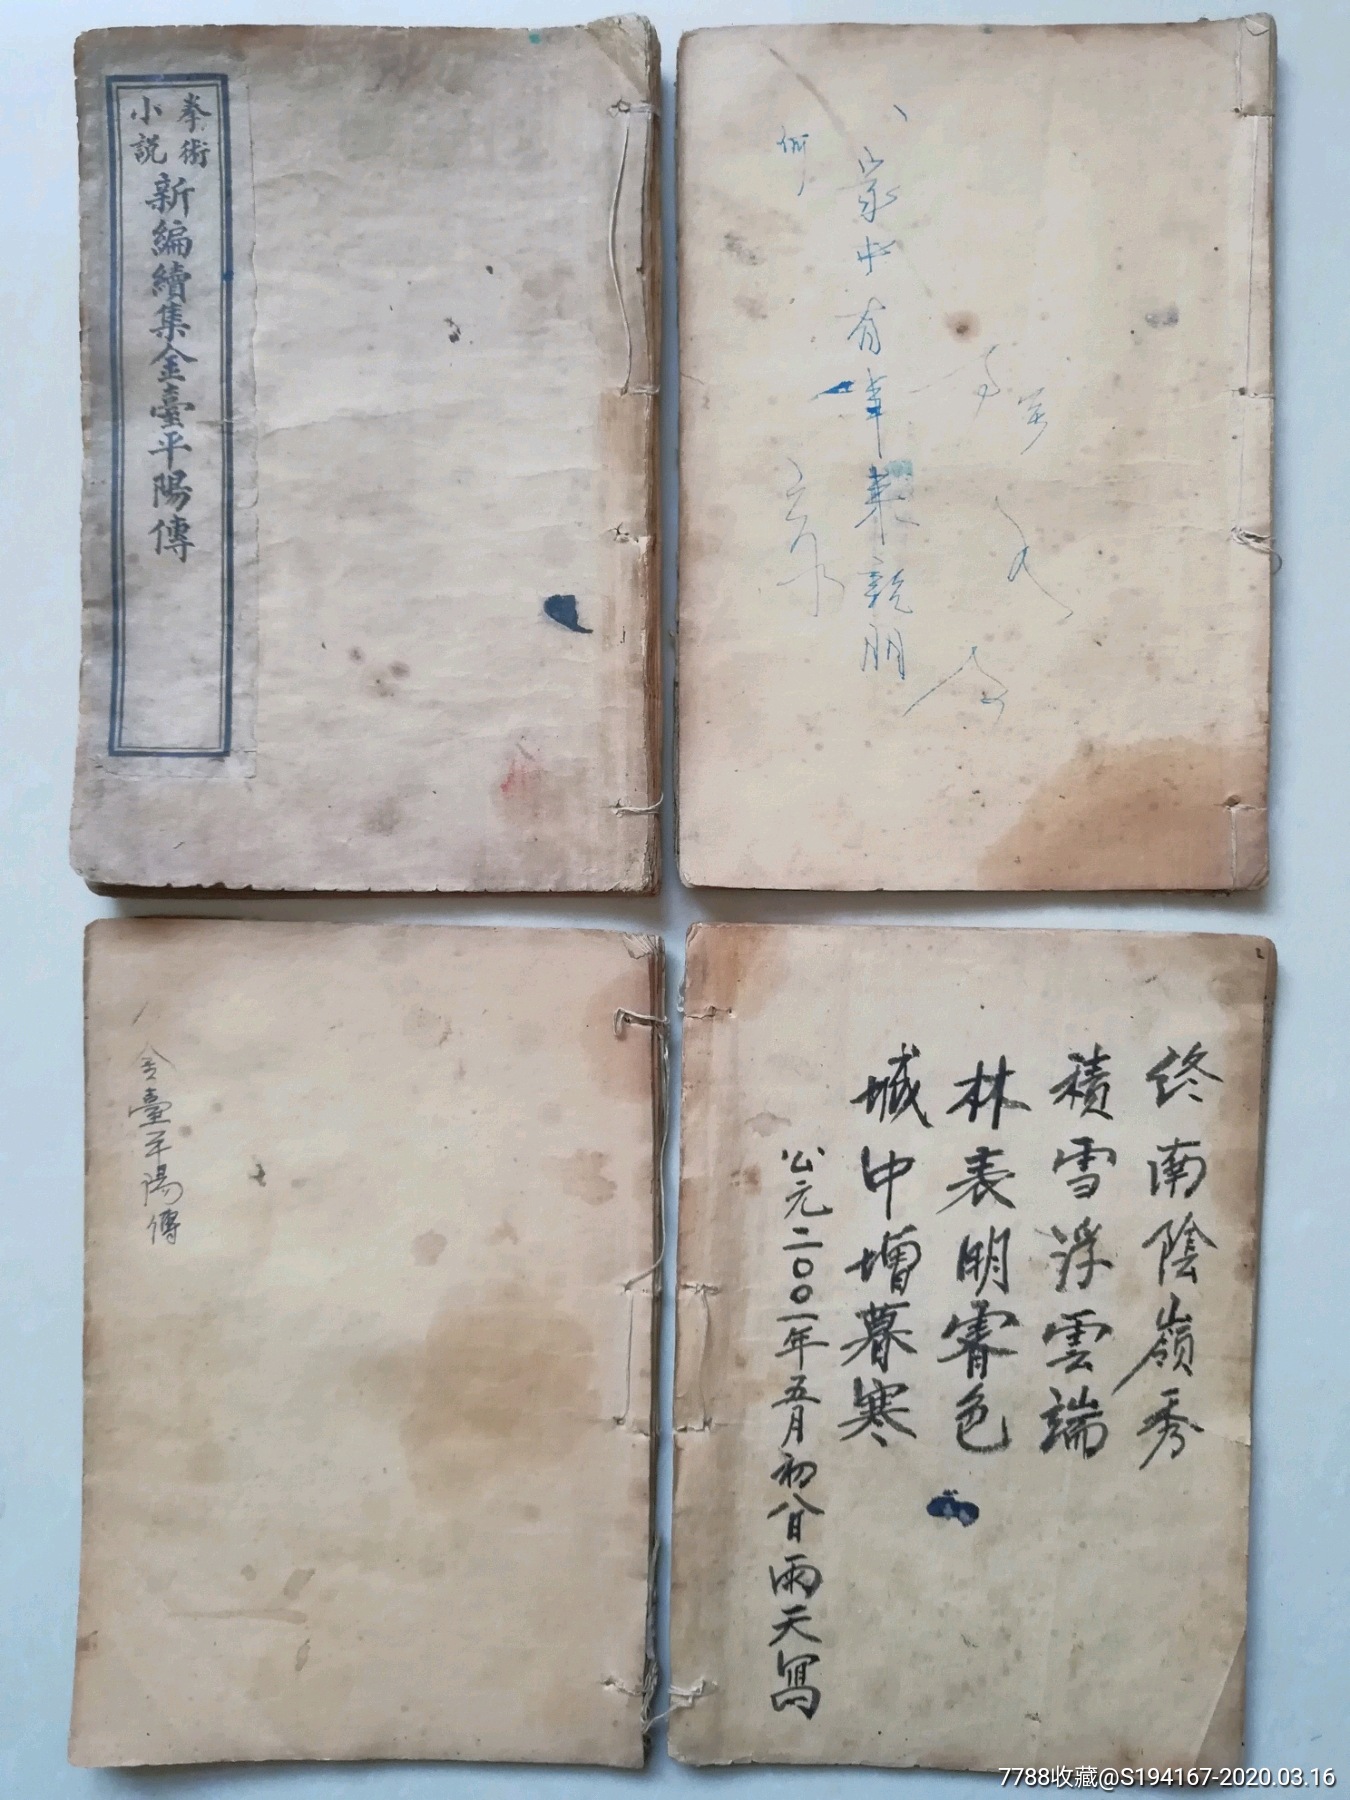 拳術
小説
新編續集金臺平陽傳
家中有事来親朋
金臺平陽傳
終南陰嶺秀
積雪浮雲端
林表明霽色
城中增暮寒
公元二00一年五月初八日雨天寫
7788收藏@S194167-2020.03.16